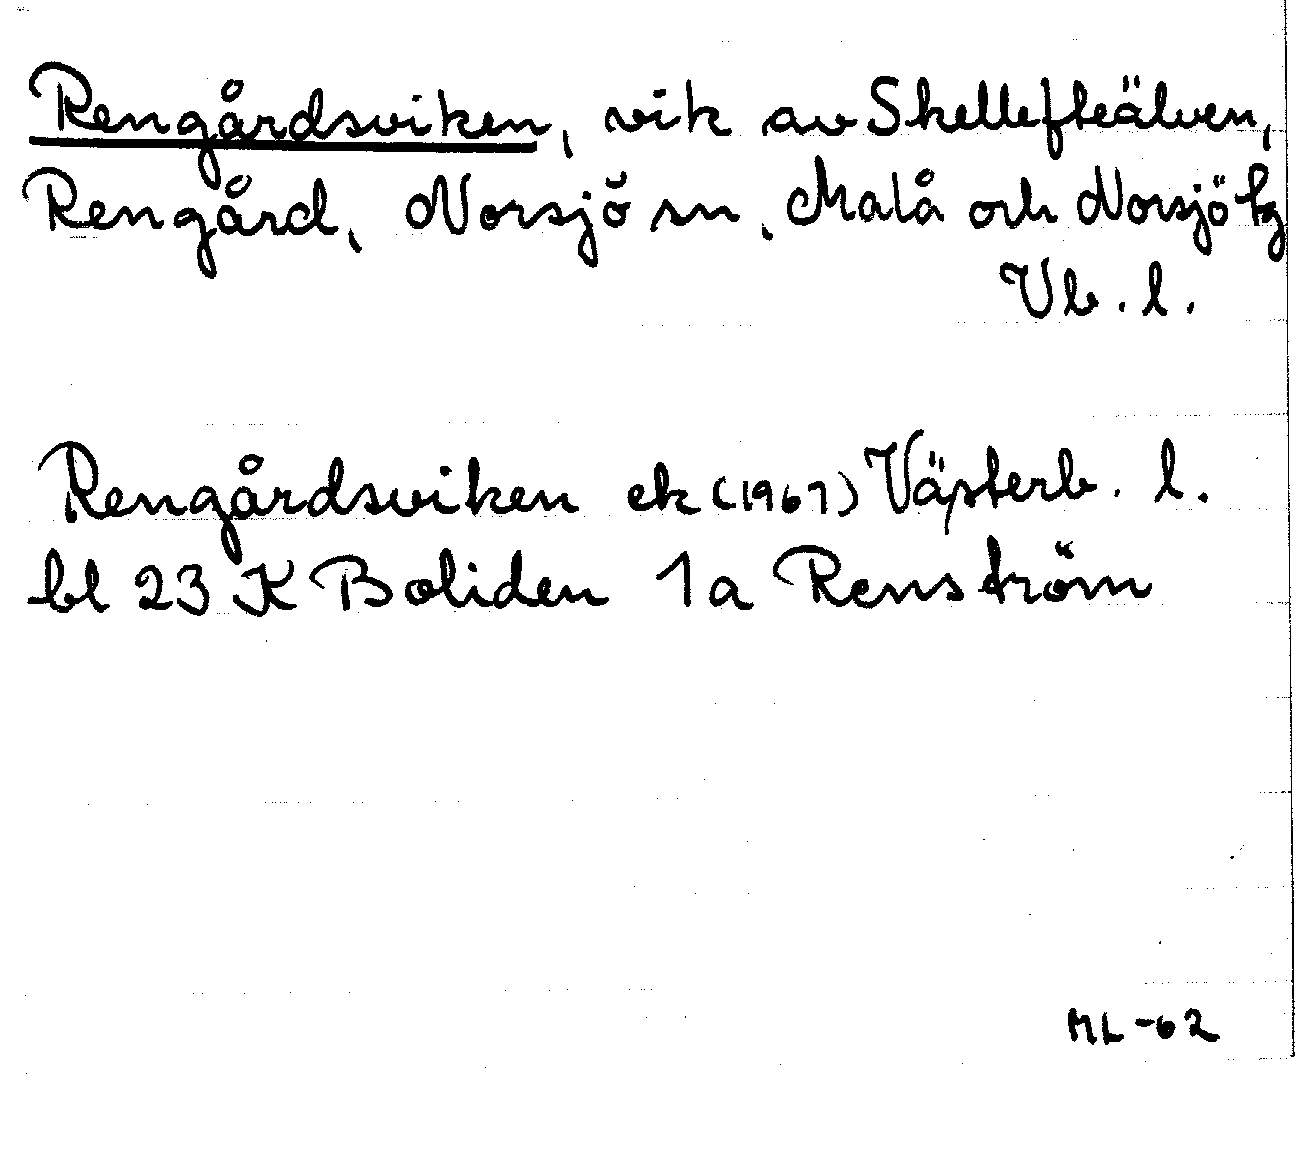 Rengårdsviken, vik av Skellefteälven,
Rengård, Norsjö sn, Malå och Norsjö tg
Vb. l.
Rengårdsviken ek (1961) Västerb. l.
bl 23 K Boliden 1a Renström
ML-62